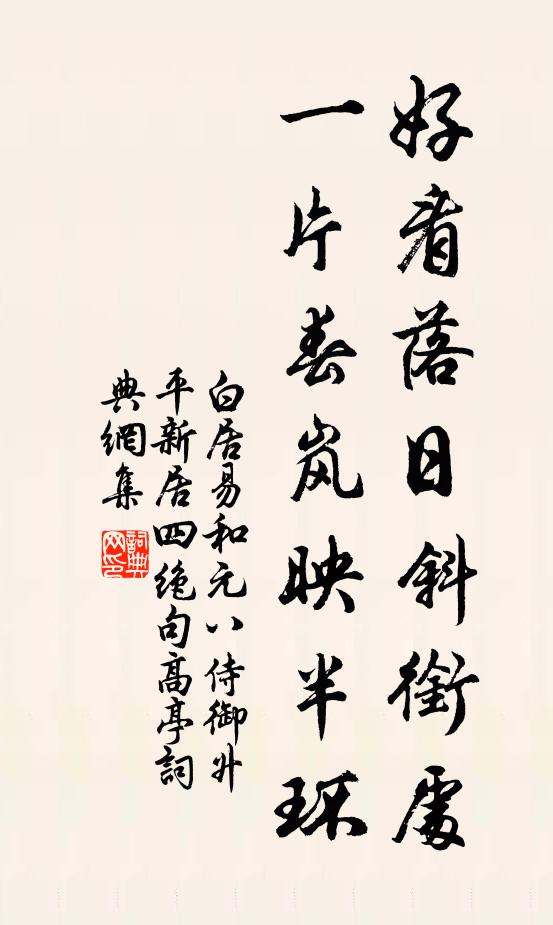 好看落日斜銜處
一片春岚映半环
白居易和元八侍御升
平新居四絶句高亭詞
典網集
詞典网印